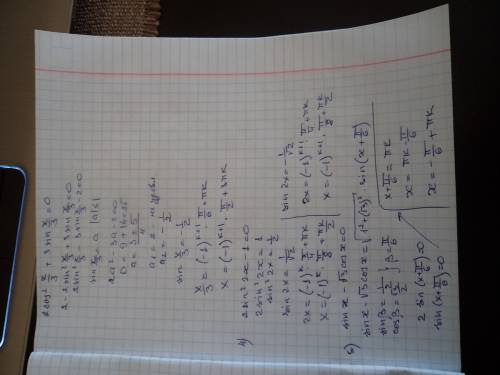 2cos² x/3 + 3 sin x/3 = 0
2 - 2sin² x/3 + 3 sin x/3 = 0
2sin² x/3 - 3 sin x/3 - 2 = 0
sin x/3 = a |a|≤1
2a² - 3a - 2 = 0
D = 9 + 16 = 25
a = 3±5/4
a₁ = 2 -
a₂ = - 1/2
sin x/3 = - 1/2
x/3 = (-1)^{k+1} π/6 + πk
x = (-1)^{k+1} · π/2 + 3πk
4) 2 sin² 2x - 1 = 0
2sin² 2x = 1
sin² 2x = 1/2
sin 2x = 1/√2
2x = (-1)^k π/4 + πk
x = (-1)^k · π/8 + πk/2
sin 2x = - 1/√2
2x = (-1)^{k+1} · π/4 + πk
x = (-1)^{k+1} · π/8 + πk/2
5) sin x √3 cos x = 0
sin x · √3 cos x = √(1² + (√3)²) · sin(x + π/6)
sin β = 1/2
cos β = √3/2 } β = π/6
2 sin (x + π/6) = 0
sin (x + π/6) = 0
x + π/6 = πk
x = πk - π/6
x = - π/6 + πk